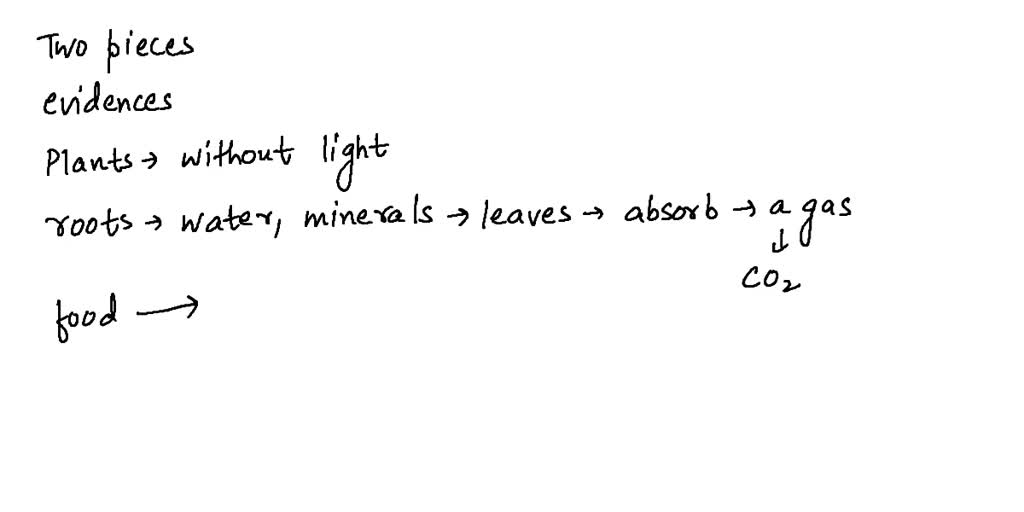 Two pieces
evidences
Plants → without light
roots → water, minerals → leaves → absorb → a gas
↓
CO₂
food →